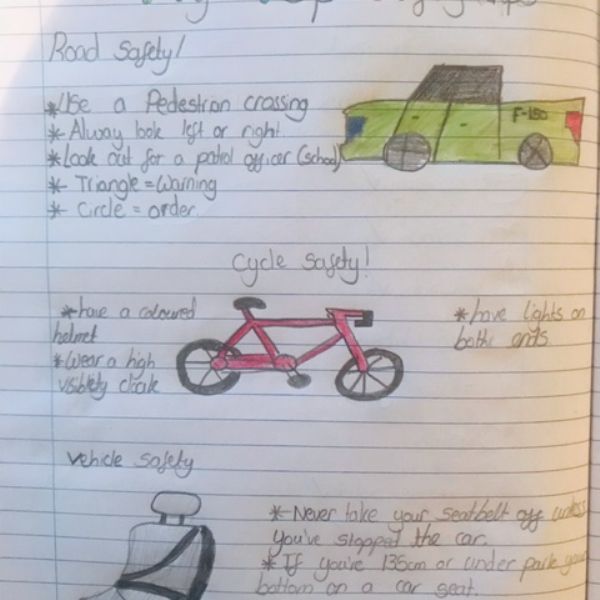 Road Safety!
*Use a Pedestrian crossing
* Alway look left or right
*Look out for a patrol officer (school)
* Triangle = Warning
* Circle = order.
F-150
Cycle Safety!
*have a coloured
helmet
*Wear a high
*have lights on
both ends
vehicle safety
*Never take your seatbelt off unless
you've stopped the car.
*If you're 135cm or under park your
bottom on a car seat.